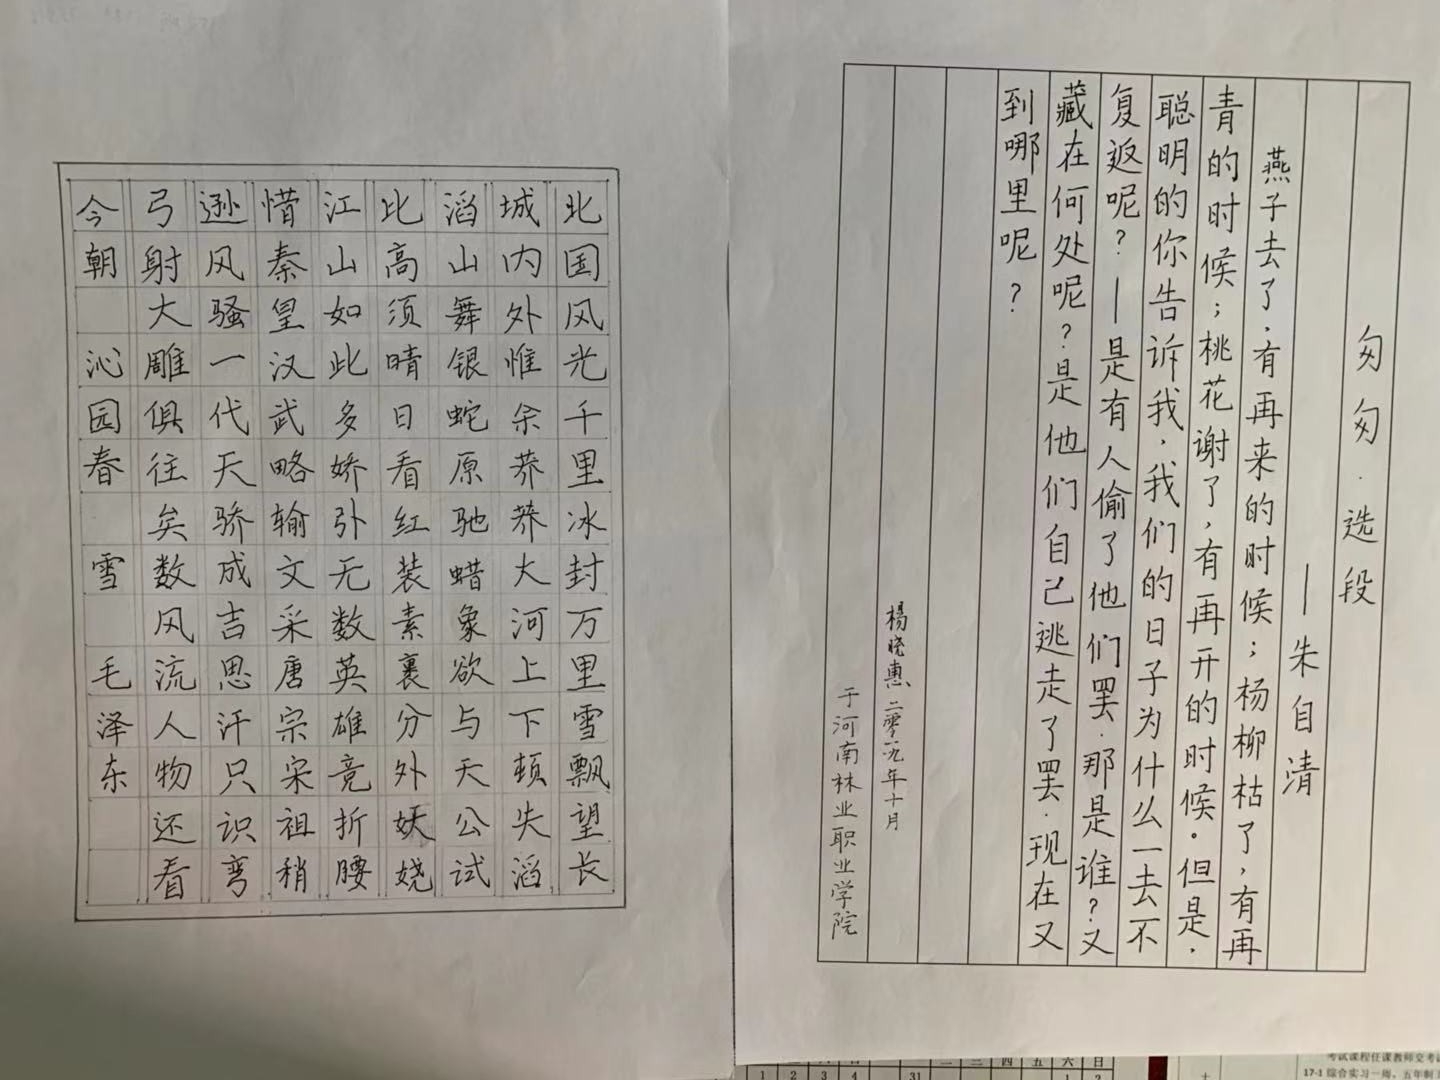 匆匆·选段
——朱自清
燕子去了,有再来的时候;杨柳枯了,有再
青的时候;桃花谢了,有再开的时候。但是,
聪明的你告诉我,我们的日子为什么一去不
复返呢?——是有人偷了他们罢·那是谁?又
藏在何处呢?是他们自己逃走了罢·现在又
到哪里呢?
楊晓惠二零一九年十月
于河南林业职业学院
北国风光千里冰封万里雪飘望长
城内外惟余莽莽大河上下顿失滔
滔山舞银蛇原驰蜡象欲与天公试
比高须晴日看红装素裹分外妖娆
江山如此多娇引无数英雄竞折腰
惜秦皇汉武略输文采唐宗宋祖稍
逊风骚一代天骄成吉思汗只识弯
弓射大雕俱往矣数风流人物还看
今朝 沁园春 雪 毛泽东
二 三 四 五 六 日
1 2 3 4 31 1 2
考试课程任课教师交考
17-1 综合实习一周,五年制